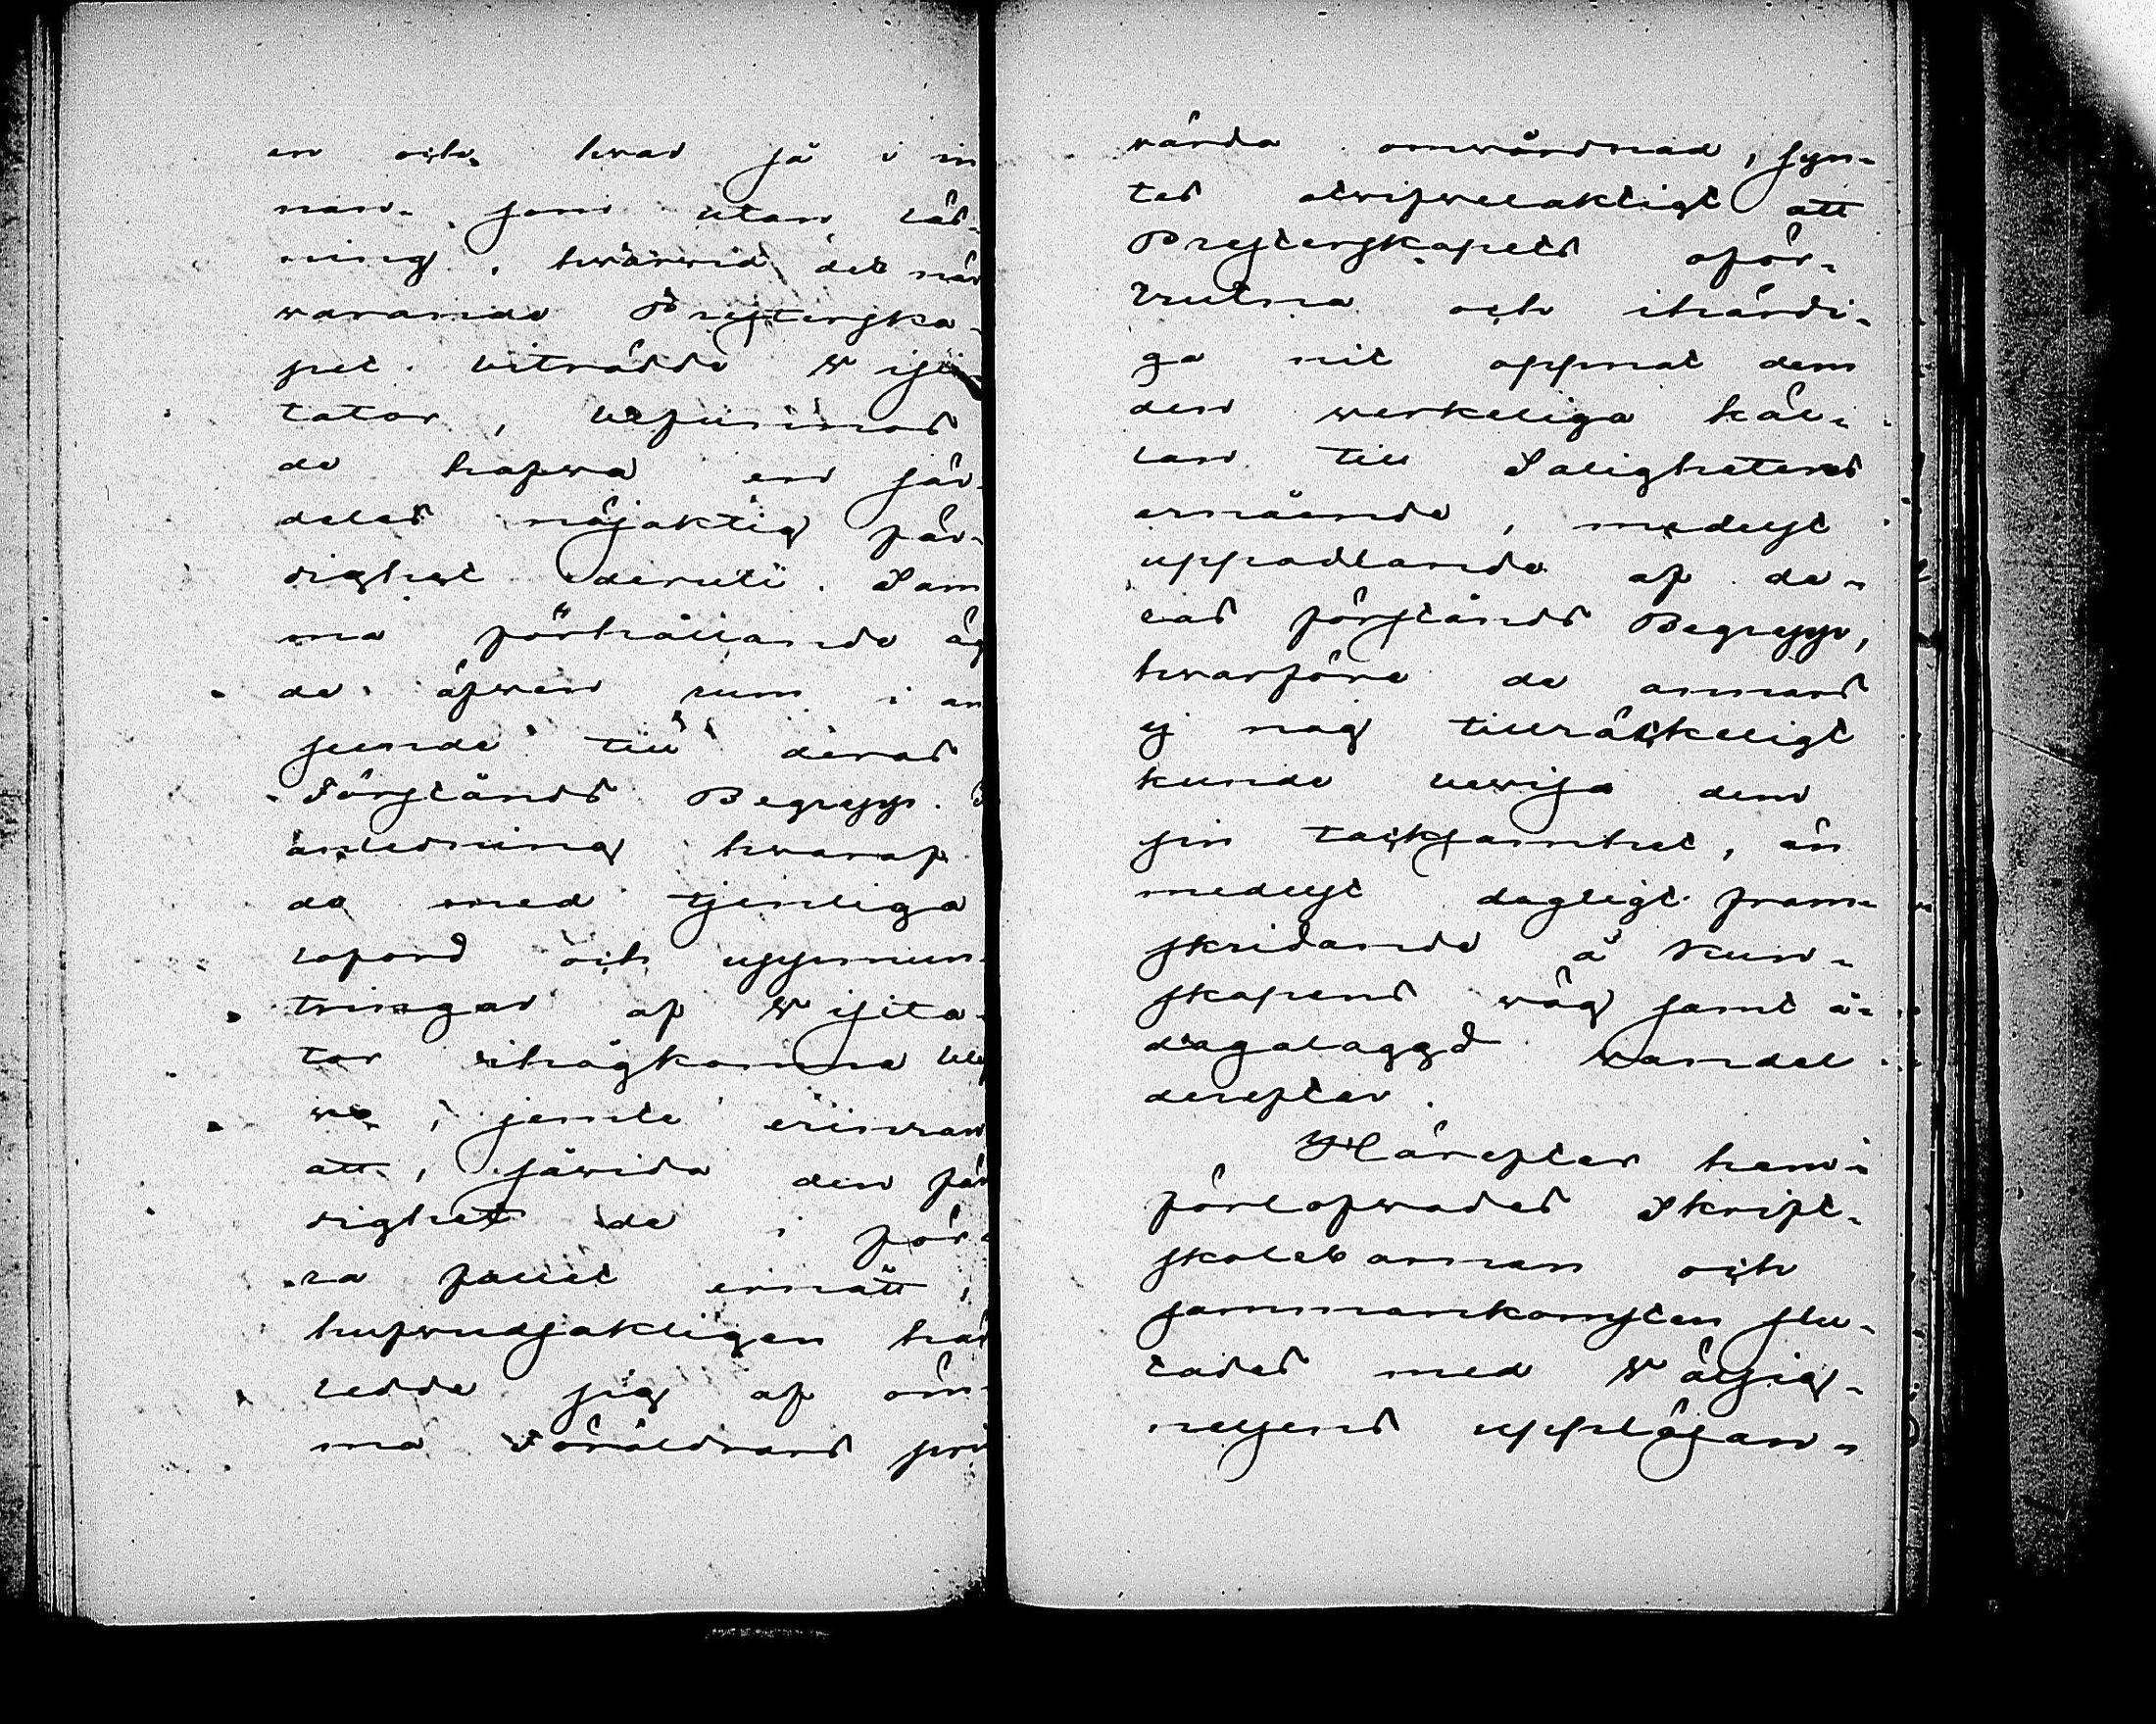 en och hvad så i in
nan- som utan läs-
ning, hwarwid det när
warande Presterska-
pet biträdde Wisi-
tator, befunnos
de hafwa en sär-
deles nöjaktig fär-
dighet deruti. Sam
ma förhållande äg
de äfwen rum i an
seende till deras
Förstånds Begrepp. I
anledning hwaraf
de med tjenliga
loford och uppmun-
tringar af Wisita-
tor ihågkomna blef
wo, jemte erinran
att, såwida den fär
dighet de i för-
ra fallet ernått,
hufwudsakligen här
ledde sig af öm-
ma Föräldrars
wårda omwårdnad, syn-
tes otwifwelaktigt att
Presterskapets oför-
trutna och ihärdi-
ga nit öppnat dem
den werkeliga käl-
lan till Salighetens
ernående, medelst
uppodlande af de-
ras förstånds Begrepp,
hwarföre de annars
ej nog tillräckeligt
kunde bewisa dem
sin tacksamhet, än
medelst dagligt fram-
skridande å Kun-
skapens wäg samt å-
dagalaggd wandel
derefter.
Härefter hem-
förlofwades Skrift-
skolebarnen och
sammankomsten slu-
tades med Wälsig-
nelsens uppläsan-